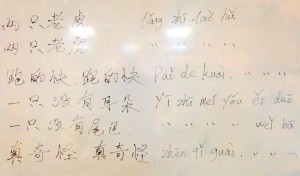 两只老虎 liǎng zhī lǎo hǔ
两只老虎 〃 〃 〃 〃
跑的快 跑的快 Pǎo de kuài. 〃 〃 〃
一只没有耳朵 Yì zhī méi yǒu ěr duō
一只没有尾巴 〃 〃 〃 〃 wěi bā
真奇怪 真奇怪. zhēn qí guài. 〃 〃 〃